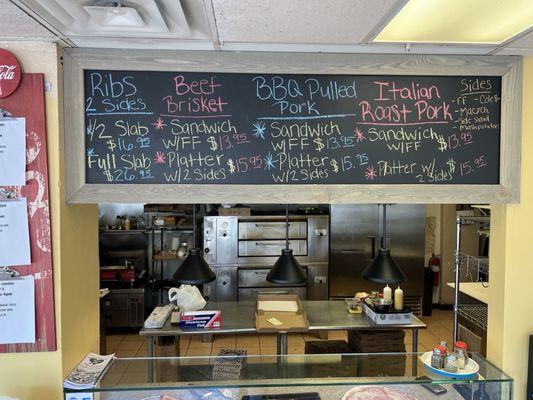 Ribs
2 Sides
1/2 Slab
$16.95
Full Slab
$26.95
Beef
Brisket
Sandwich
w/FF $13.95
Platter $15.95
w/2 Sides
BBQ Pulled
Pork
Sandwich
w/FF $13.95
Platter $15.95
w/2 Sides
Italian
Roast Pork
Sandwich $13.95
w/FF
Platter w/ $15.95
2 Sides
Sides
- FF - Cole
- Mac n ch
- Side Salad
- Mash potatoes